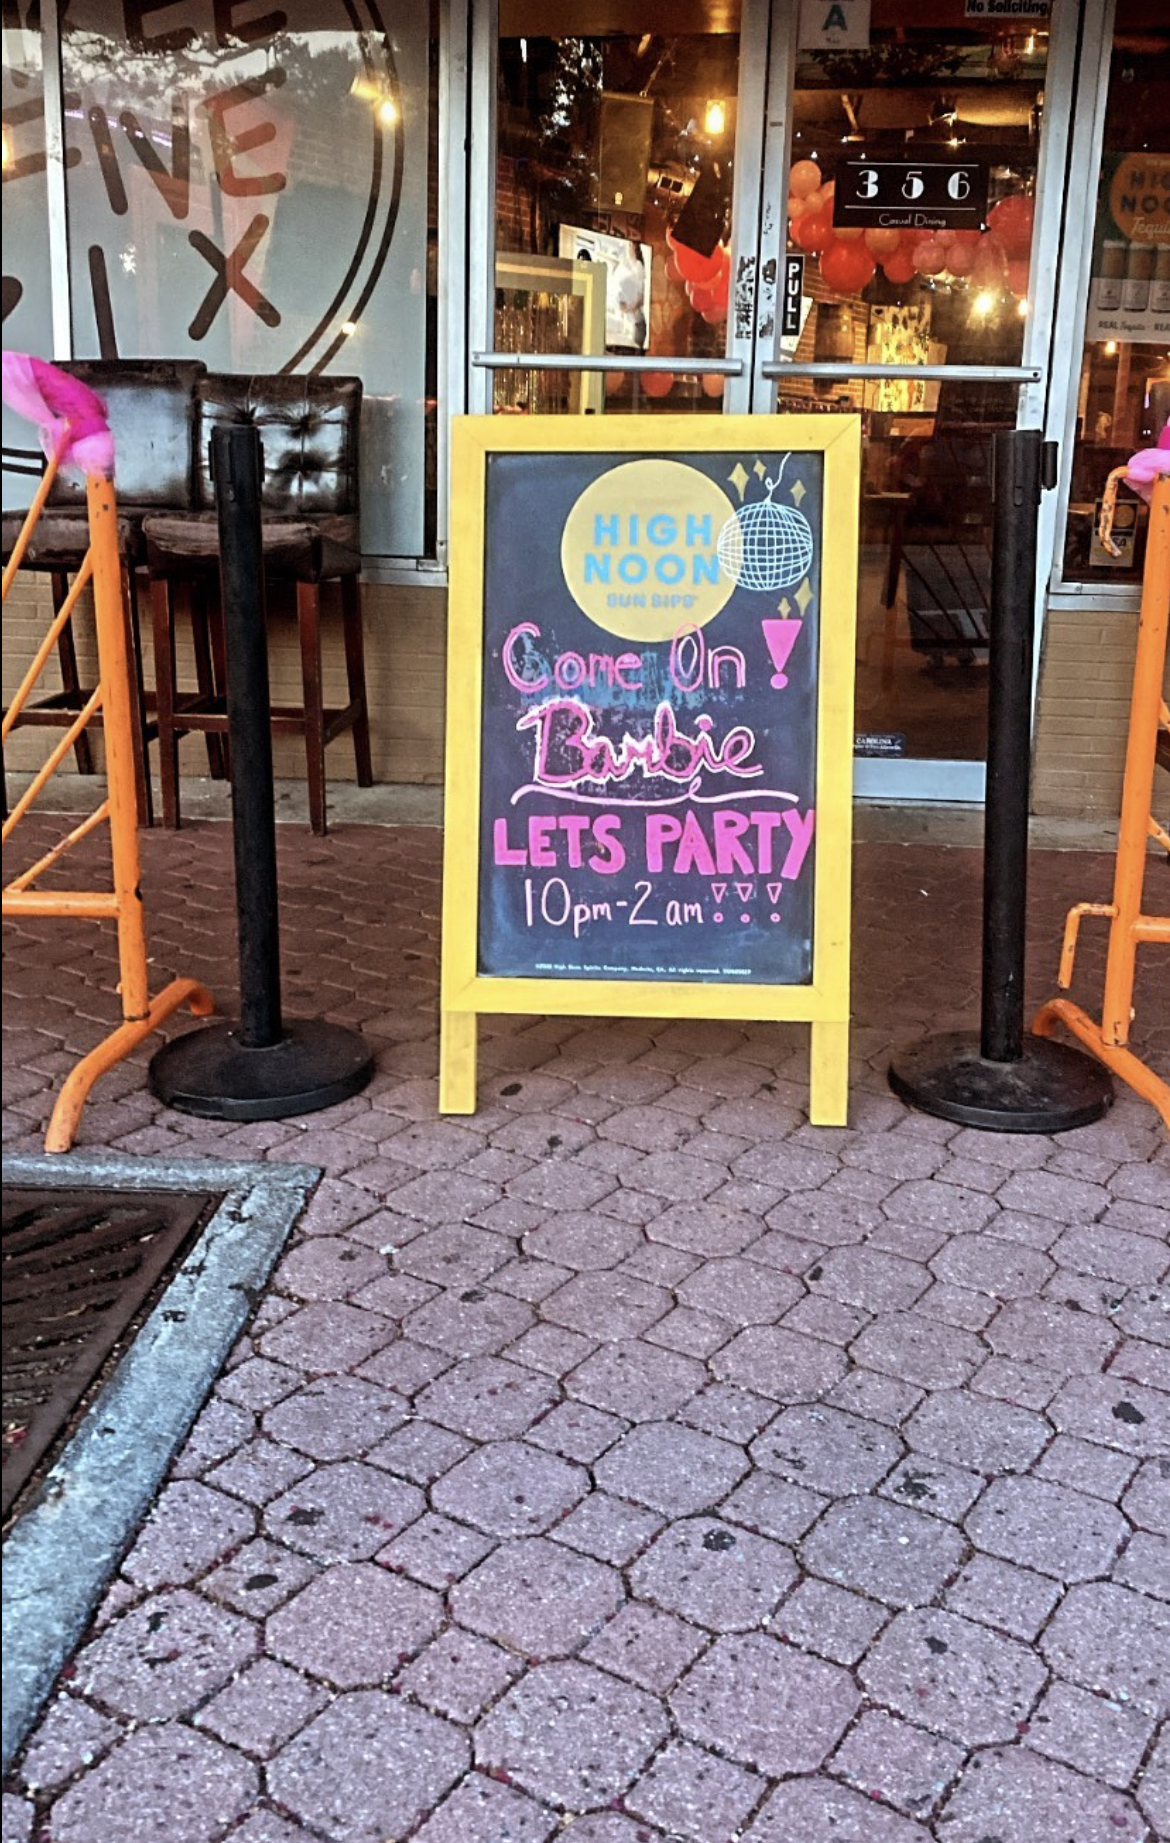 No Soliciting
A
EE
FIVE
IX
3 5 6
Casual Dining
PULL
HIGH
NOON
SUN SIPS
Come On!
Barbie
LETS PARTY
10pm-2am!!!
HIGH
NOON
Tequila
REAL Tequila
CAROLINA